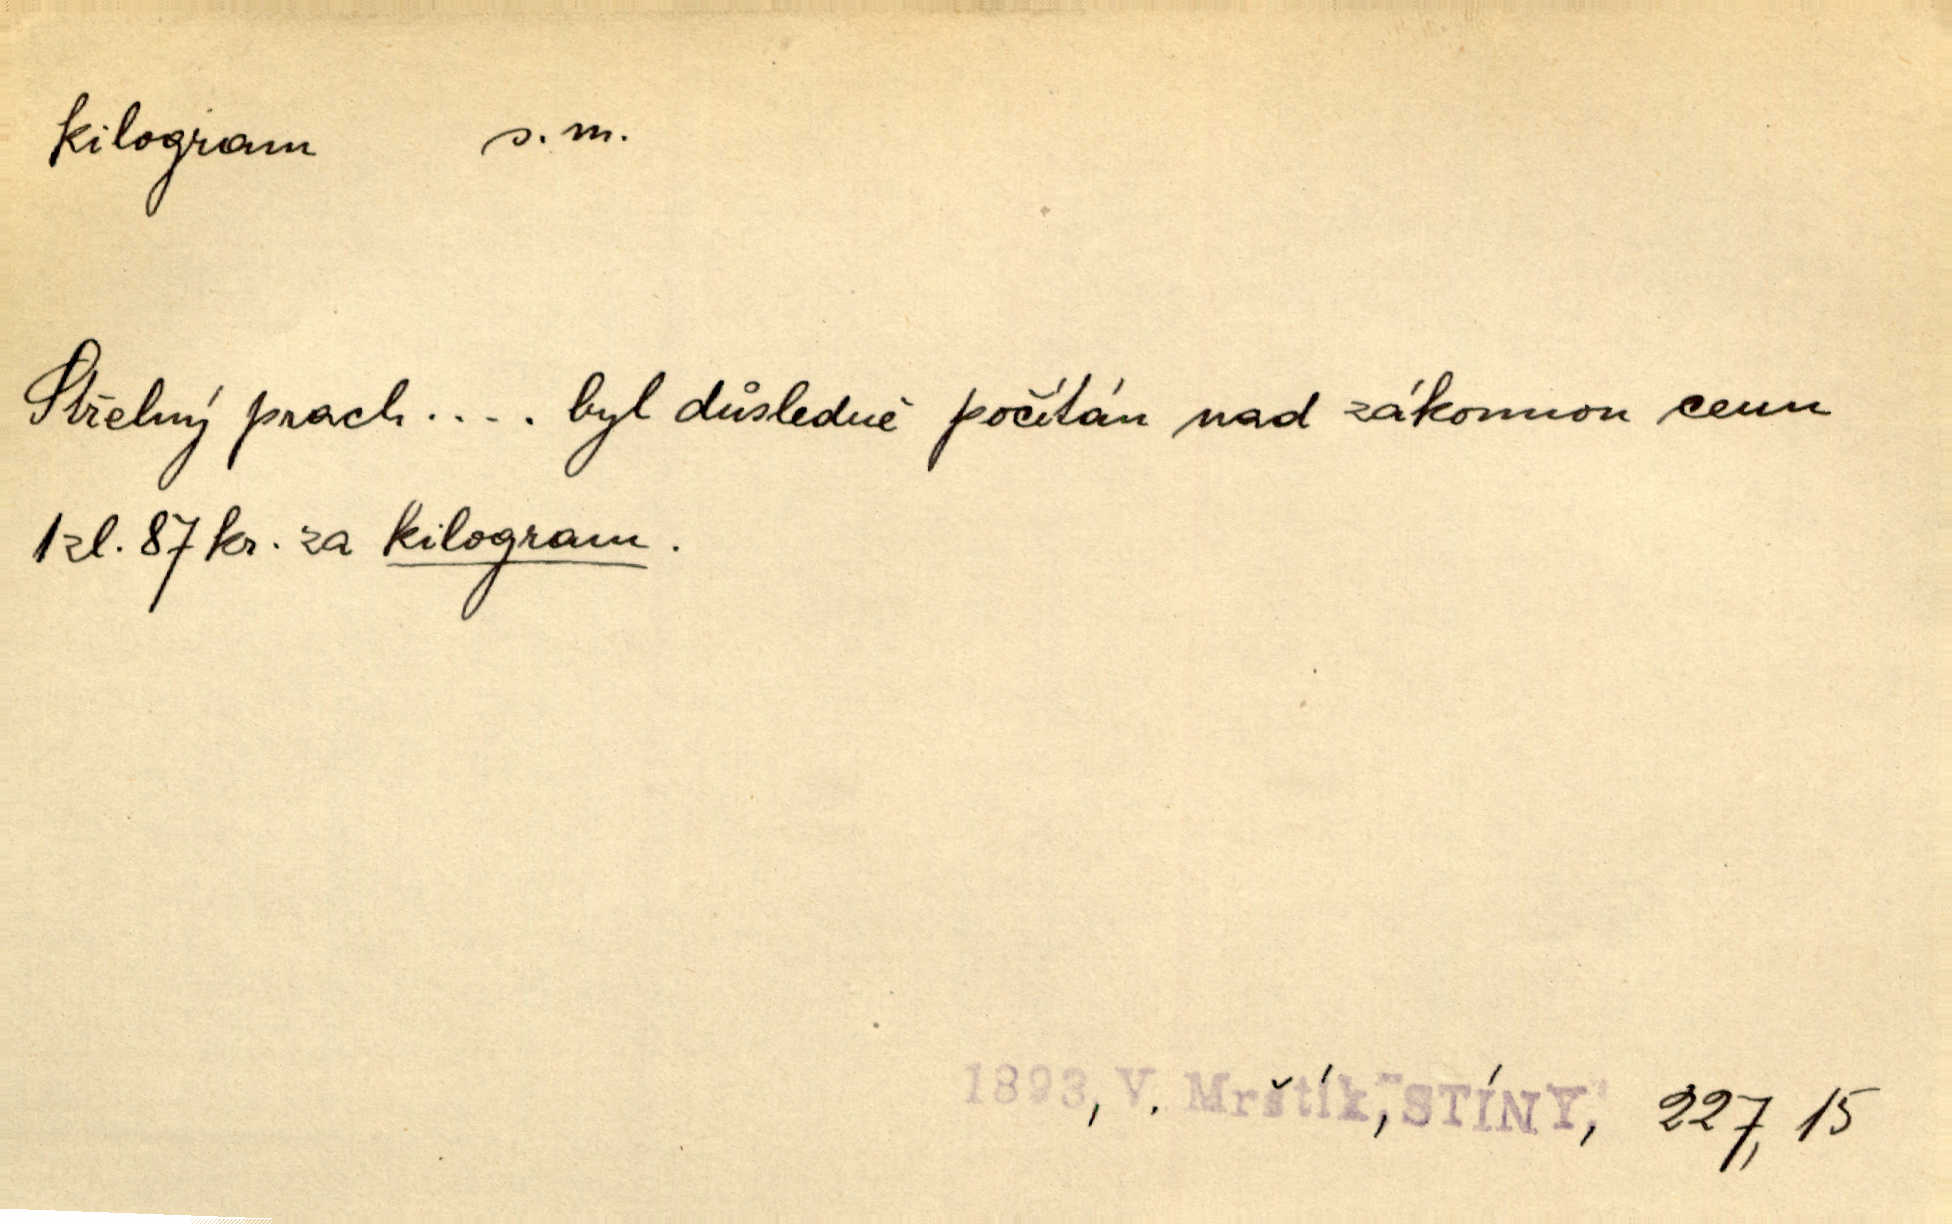 kilogram s. m.
Střelný prach.... byl důsledně počítán nad zákonnou cenu
1 zl. 87 kr. za kilogram.
1893, V. Mrštík, "STÍNY," 227, 15